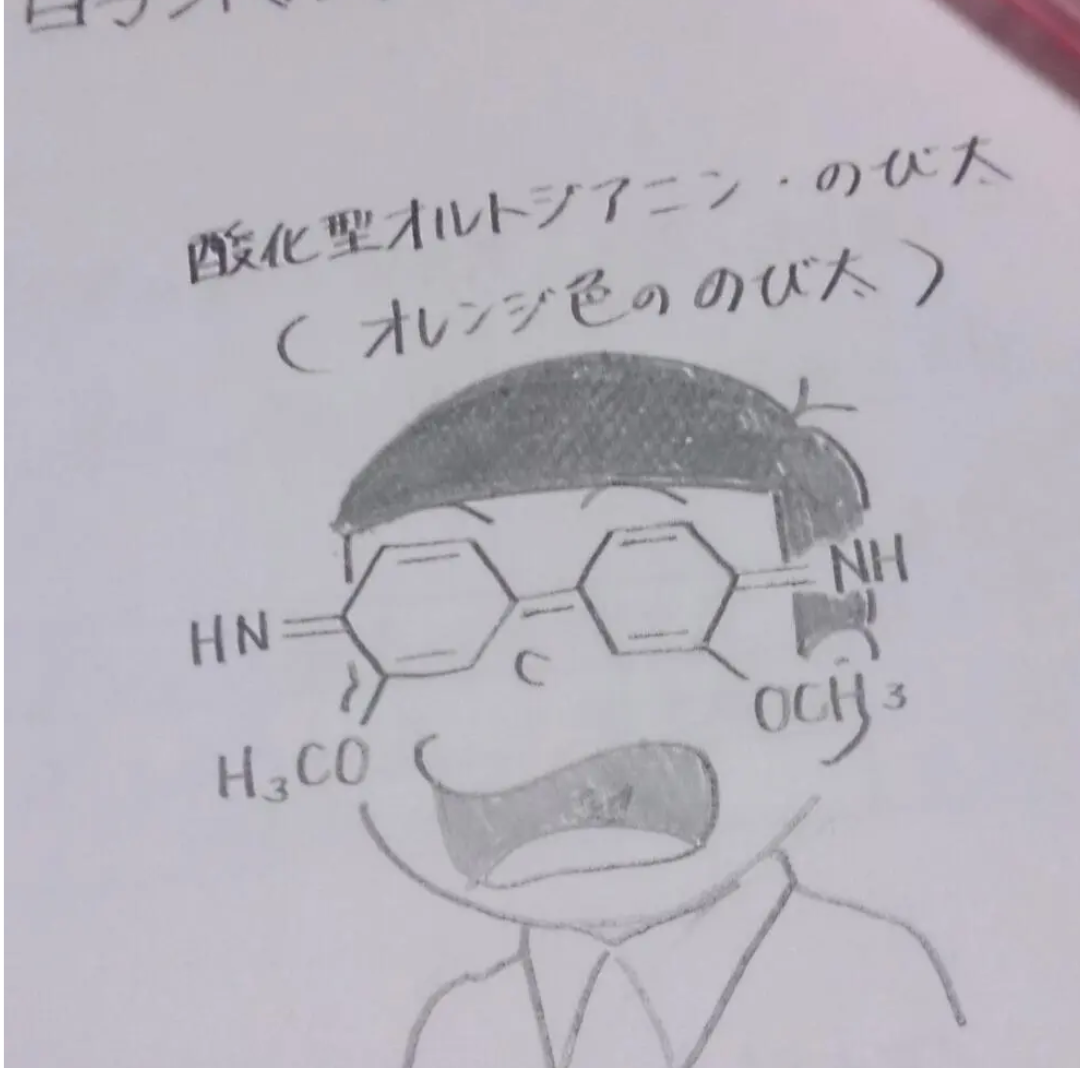 酸化型オルトジアニジン・のび太
(オレンジ色ののび太)
HN
NH
OCH3
H3CO